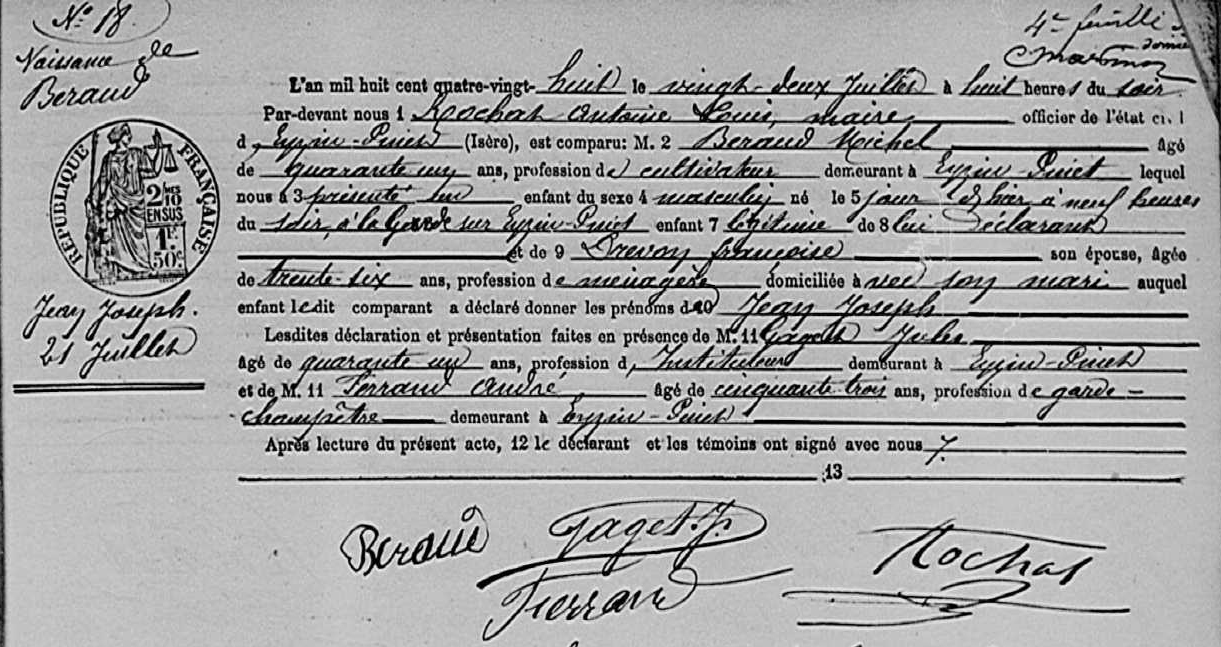 N° 18.
Naissance de
Beraud
4e feuille
L'an mil huit cent quatre-vingt-huit le vingt-deux Juillet à huit heures du soir.
Par-devant nous 1 Rochat Antoine Louis, maire officier de l'état civil
d'Eyzin-Pinet (Isère), est comparu: M. 2 Beraud Michel âgé
de quarante un ans, profession de cultivateur demeurant à Eyzin-Pinet lequel
nous à 3 présenté un enfant du sexe 4 masculin né le 5 jour d'hier, à neuf heures
du soir, à la Garde sur Eyzin-Pinet enfant 7 légitime de 8 lui déclarant
et de 9 Prevon françoise son épouse, âgée
de trente-six ans, profession de ménagère domiciliée avec son mari auquel
enfant ledit comparant a déclaré donner les prénoms de 10 Jean Joseph
Lesdites déclaration et présentation faites en présence de M. 11 Gaget Jules
âgé de quarante un ans, profession d'Instituteur demeurant à Eyzin-Pinet
et de M. 11 Ferrand André âgé de cinquante trois ans, profession de garde-
champêtre demeurant à Eyzin-Pinet
Après lecture du présent acte, 12 le déclarant et les témoins ont signé avec nous
13
RÉPUBLIQUE FRANÇAISE
2/10mes
EN SUS
1F.
50c
Jean Joseph.
21 Juillet
Beraud
Gaget. J.
Ferrand
Rochat